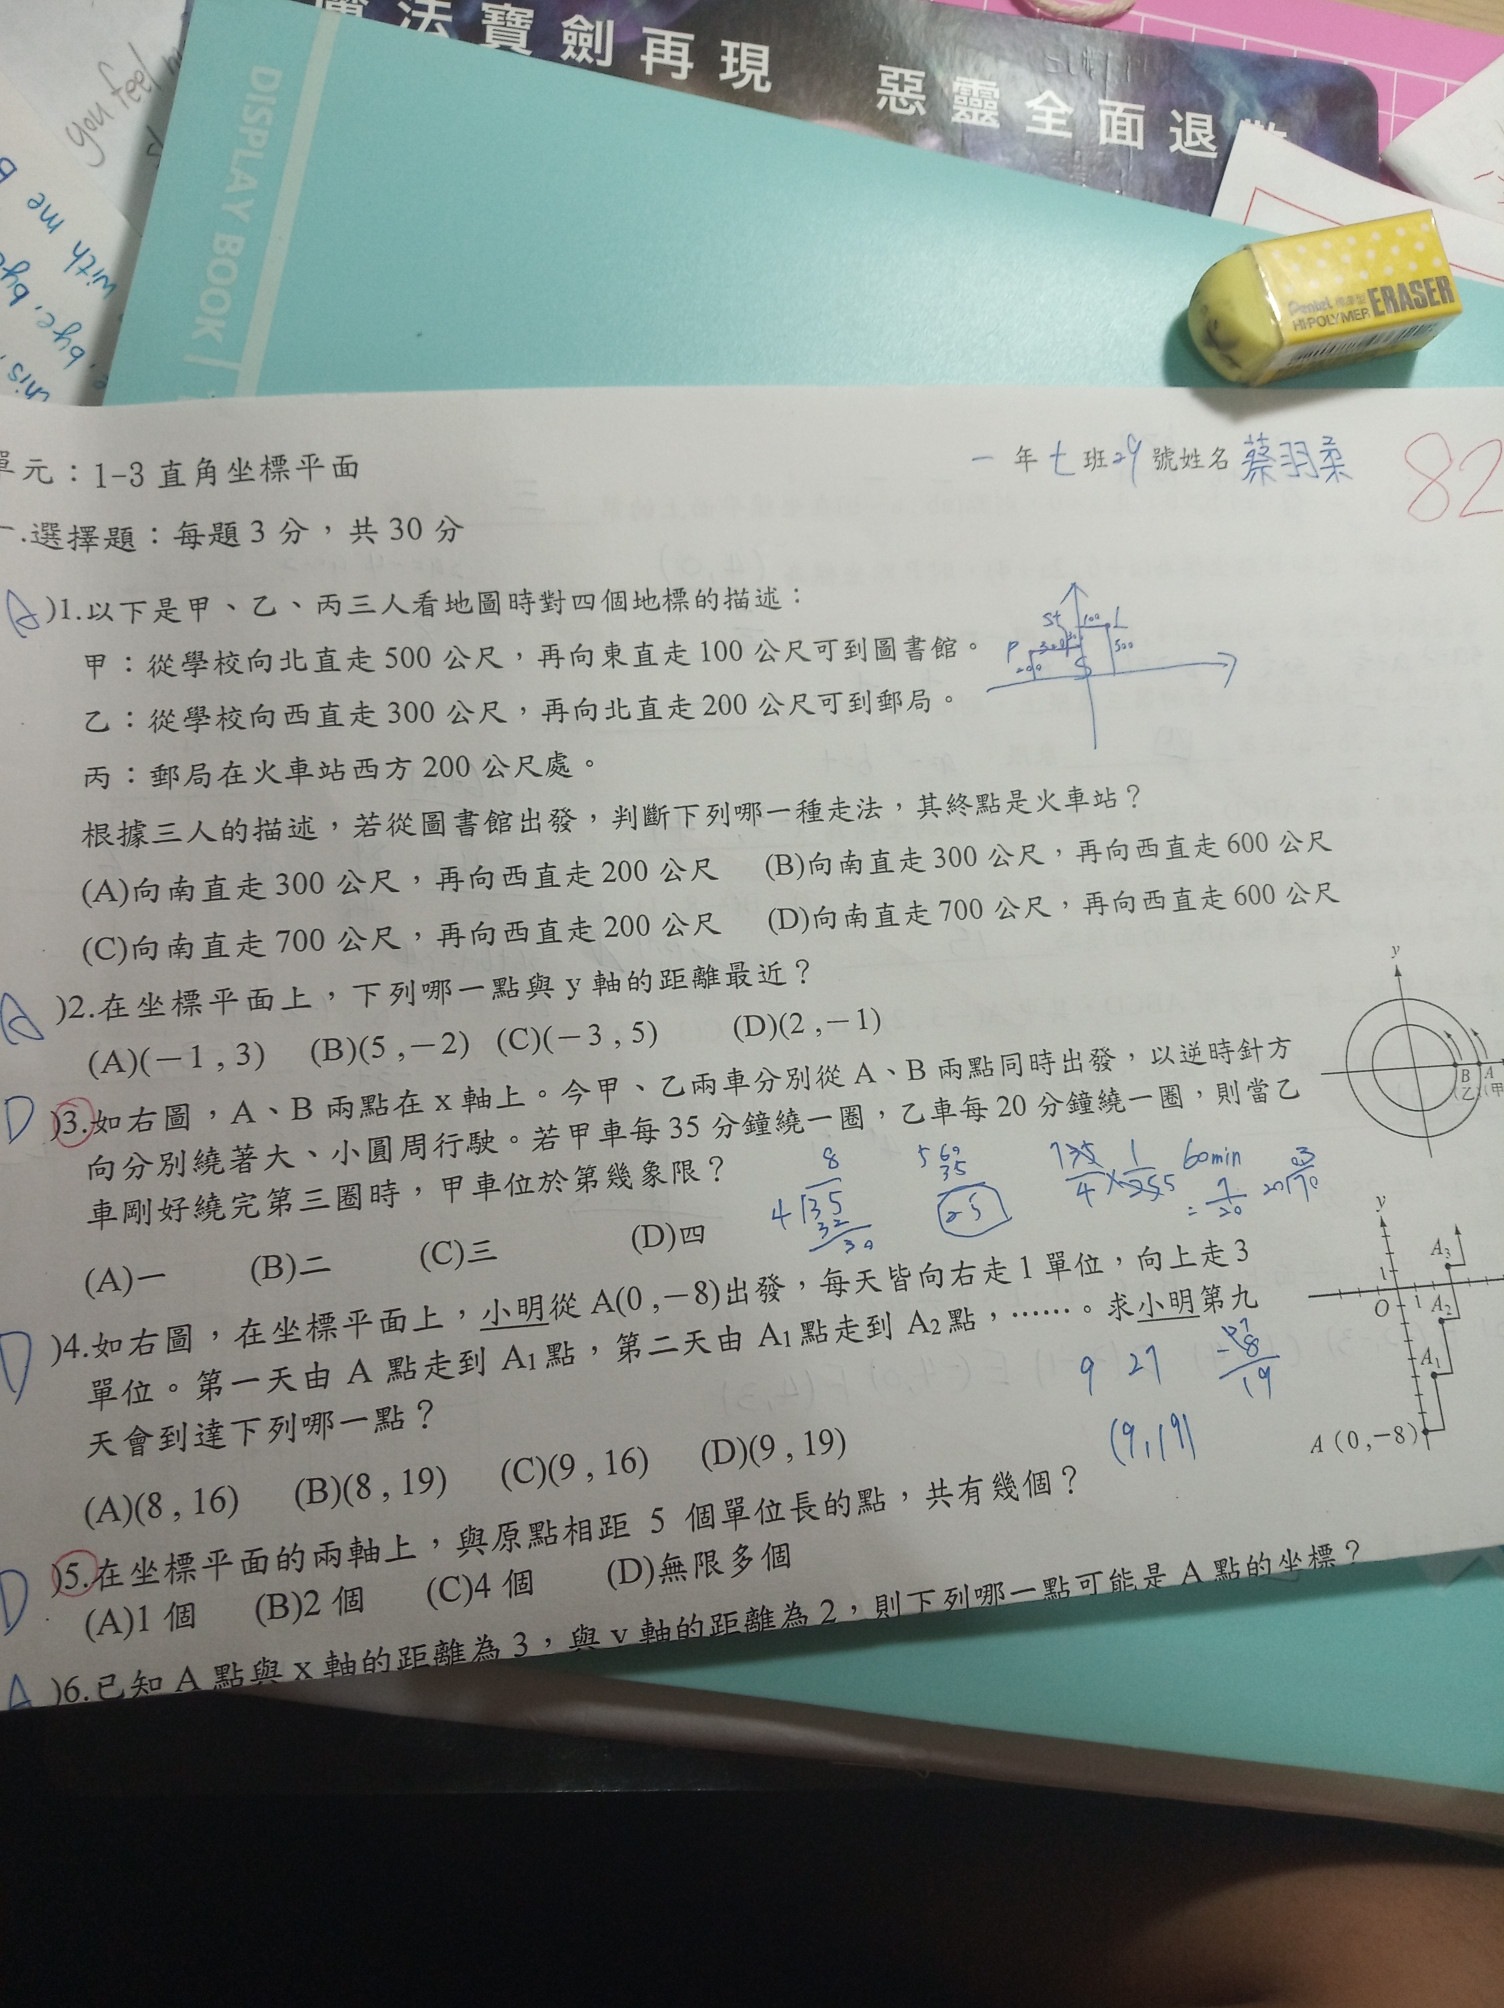 魔法寶劍再現 惡靈全面退
DISPLAY BOOK
you feel
with me
bye, bye
this
Pentel
HI-POLYMER ERASER
單元：1-3 直角坐標平面
一年七班29號姓名 蔡羽柔
82
一.選擇題：每題 3 分，共 30 分
A )1.以下是甲、乙、丙三人看地圖時對四個地標的描述：
甲：從學校向北直走 500 公尺，再向東直走 100 公尺可到圖書館。
乙：從學校向西直走 300 公尺，再向北直走 200 公尺可到郵局。
丙：郵局在火車站西方 200 公尺處。
st 100 L
P 300 500
200 S
根據三人的描述，若從圖書館出發，判斷下列哪一種走法，其終點是火車站？
(A)向南直走 300 公尺，再向西直走 200 公尺 (B)向南直走 300 公尺，再向西直走 600 公尺
(C)向南直走 700 公尺，再向西直走 200 公尺 (D)向南直走 700 公尺，再向西直走 600 公尺
A )2.在坐標平面上，下列哪一點與 y 軸的距離最近？
(A)(－1 , 3) (B)(5 ,－2) (C)(－3 , 5) (D)(2 ,－1)
D )3.如右圖，A、B 兩點在 x 軸上。今甲、乙兩車分別從 A、B 兩點同時出發，以逆時針方
向分別繞著大、小圓周行駛。若甲車每 35 分鐘繞一圈，乙車每 20 分鐘繞一圈，則當乙
車剛好繞完第三圈時，甲車位於第幾象限？
(A)一 (B)二 (C)三 (D)四
y
B A
(乙) (甲
8
4 35
32
30
5 60
35
25
60min
= 7/20
D )4.如右圖，在坐標平面上，小明從 A(0 ,－8)出發，每天皆向右走 1 單位，向上走 3
單位。第一天由 A 點走到 A1 點，第二天由 A1 點走到 A2 點，……。求小明第九
天會到達下列哪一點？
(A)(8 , 16) (B)(8 , 19) (C)(9 , 16) (D)(9 , 19)
9 27
27
-8
19
(9,19)
y
A3
1
O 1 A2
A1
A (0,－8)
D )5.在坐標平面的兩軸上，與原點相距 5 個單位長的點，共有幾個？
(A)1 個 (B)2 個 (C)4 個 (D)無限多個
A )6.已知 A 點與 x 軸的距離為 3，與 y 軸的距離為 2，則下列哪一點可能是 A 點的坐標？